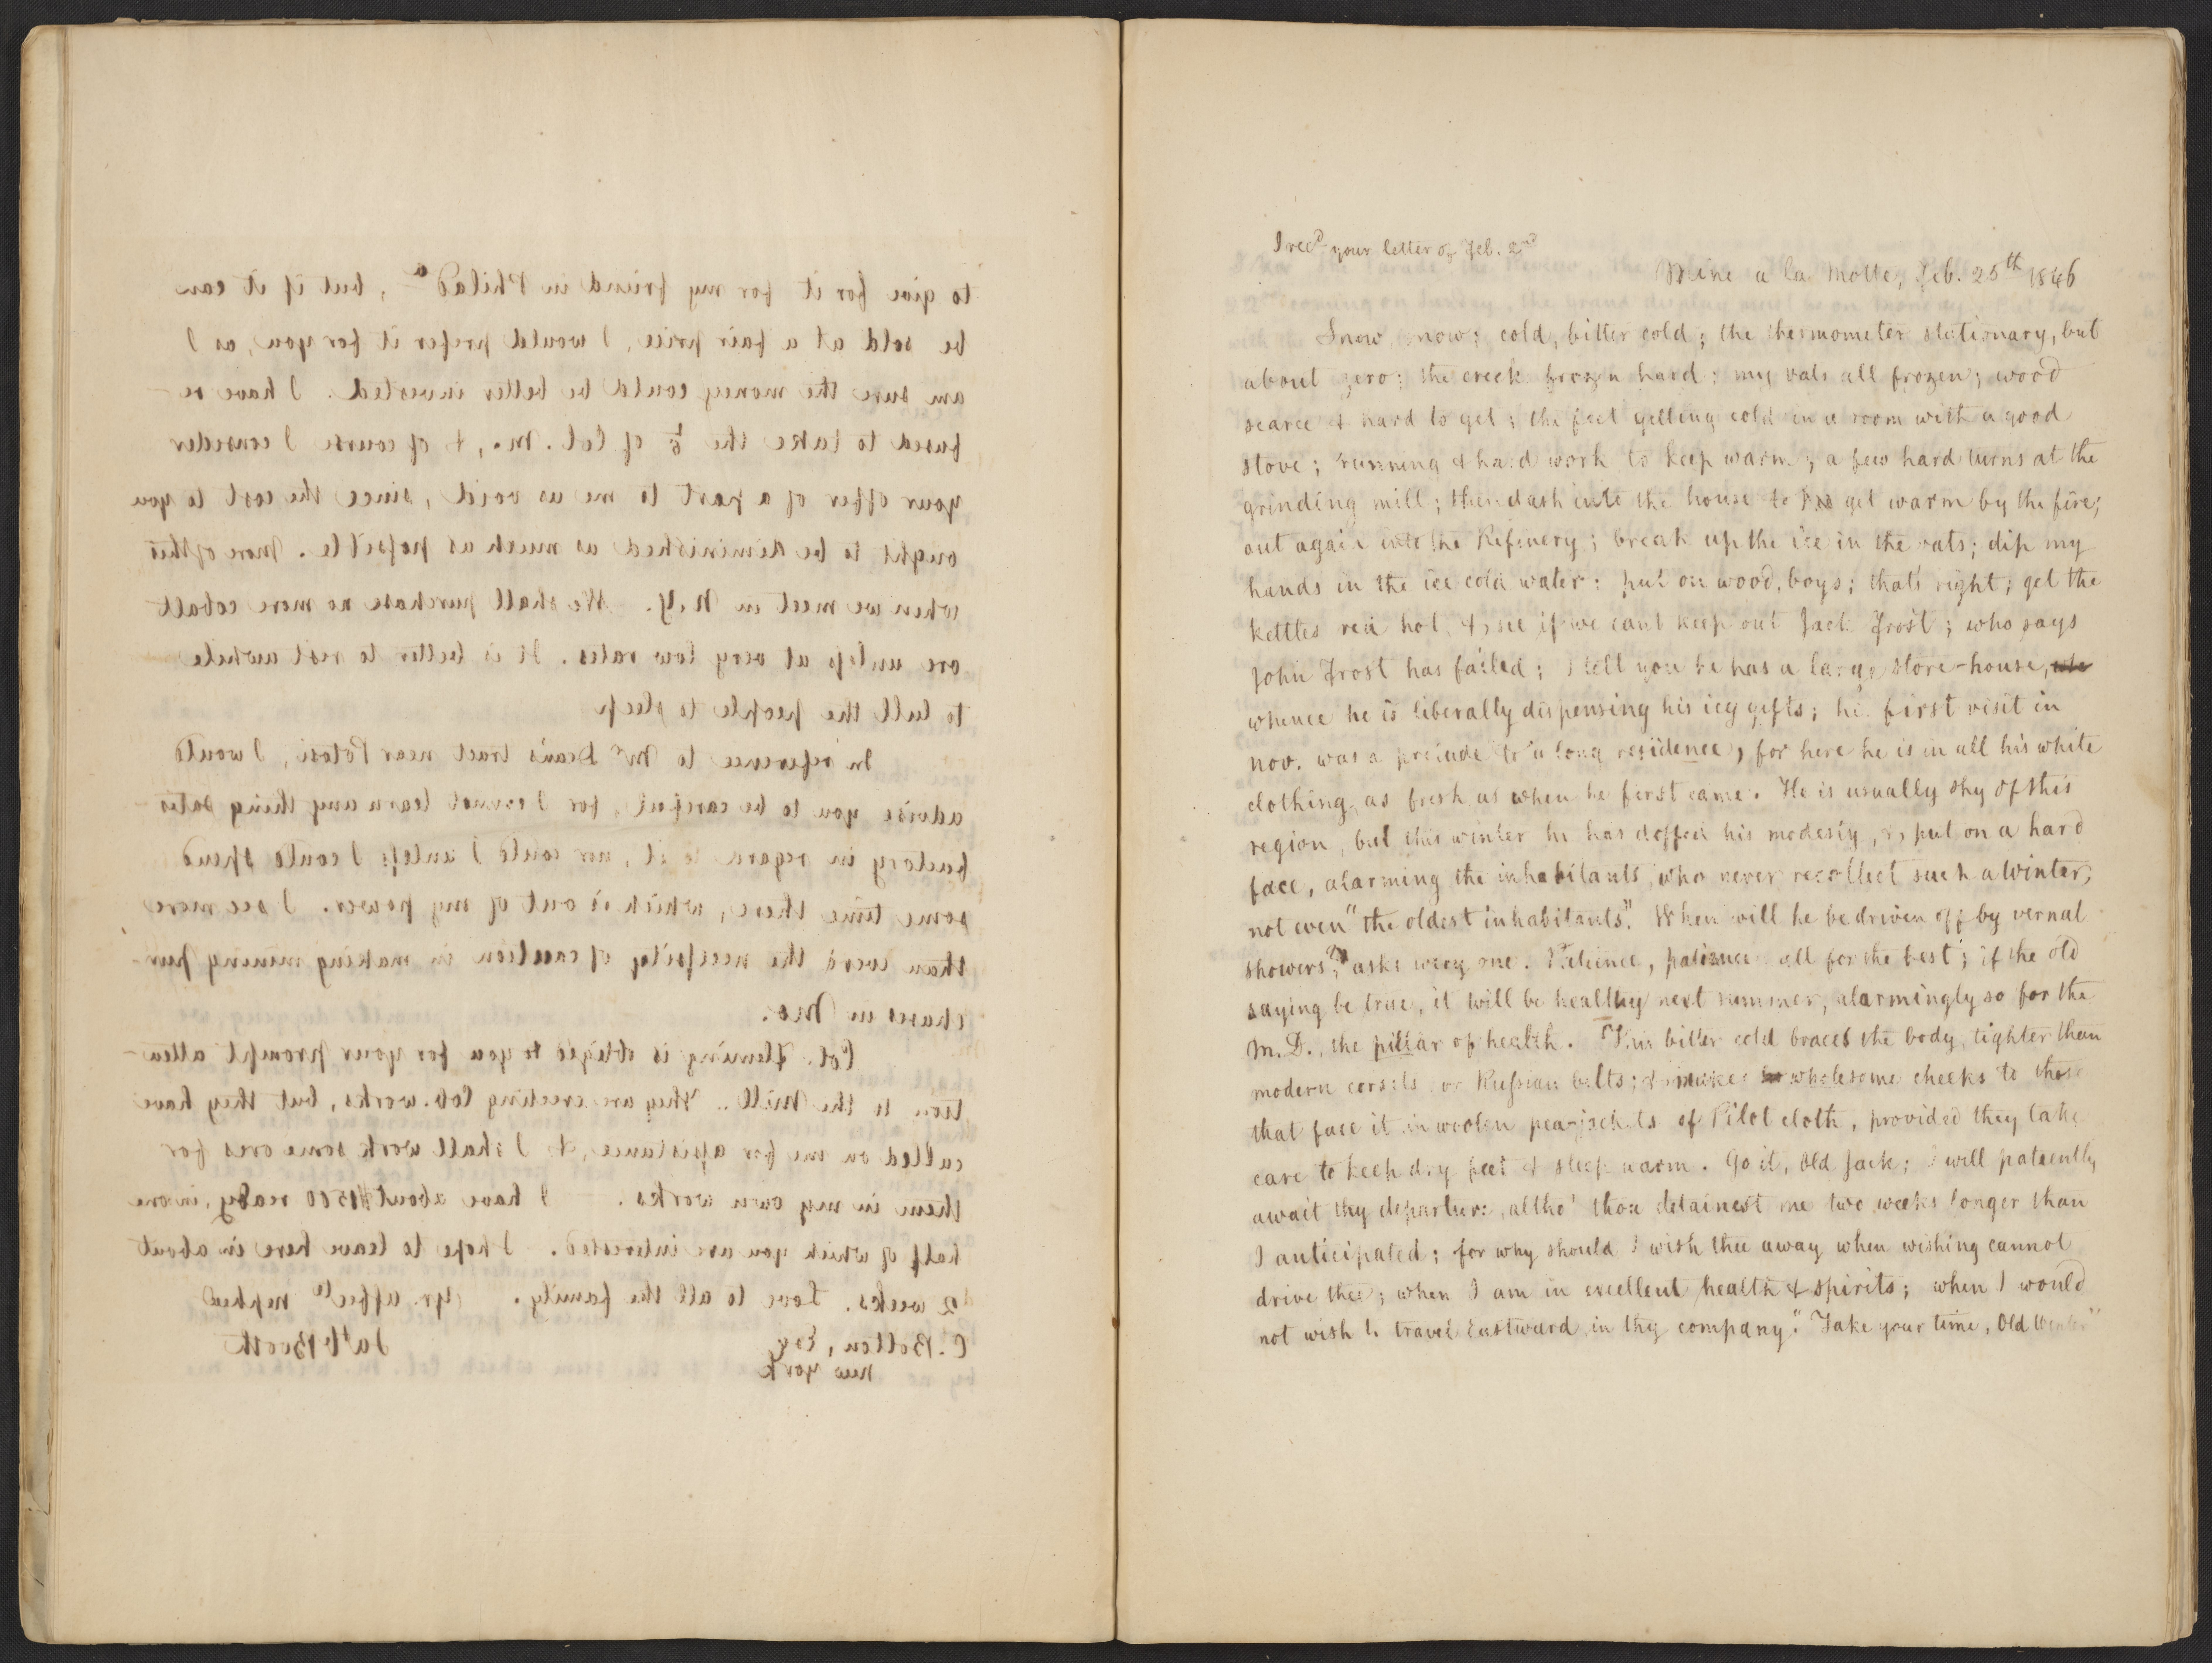 to give for it for my friend in Philada, but if it can
be sold at a fair price, I would prefer it for you, as I
am sure the money could be better invested. I have re-
fused to take the 1/6 of Col. M., & of course I consider
your offer of a part to me as void, since the cost to you
ought to be diminished as much as possible. More of this
when we meet in N.Y. We shall purchase no more cobalt
ore unless at very low rates. It is better to rest awhile
to lull the people to sleep
In reference to Mr Dean's tract near Potosi, I would
advise you to be careful, for I cannot learn any thing satis-
factory in regard to it, nor could I unless I could spend
some time there, which is out of my power. I see more
than ever the necessity of caution in making mining pur-
chases in Mo.
Col. Fleming is obliged to you for your prompt atten-
tion to the Mill. They are erecting Cob. works, but they have
called on me for assistance, & I shall work some ores for
them in my own works. I have about $1500 ready, in one
half of which you are interested. I hope to leave here in about
2 weeks. Love to all the family. Yr. affecte nephew
C. Bolton, Esq Jas C Booth
New York
I recd your letter of Feb. 2nd
Mine a la Motte, Feb. 25th 1846
Snow, snow; cold, bitter cold; the thermometer stationary, but
about zero; the creek frozen hard; my vats all frozen; wood
scarce & hard to get; the feet getting cold in a room with a good
stove; running & hard work to keep warm; a few hard turns at the
grinding mill; then dash into the house to get warm by the fire;
out again into the Refinery; break up the ice in the vats; dip my
hands in the ice cold water: put on wood, boys; that's right; get the
kettles red hot, & see if we cant keep out Jack Frost; who says
John Frost has failed; I tell you he has a large store-house,
whence he is liberally dispensing his icy gifts; his first visit in
Nov. was a prelude to a long residence, for here he is in all his white
clothing, as fresh as when he first came. He is usually shy of this
region, but this winter he has doffed his modesty, & put on a hard
face, alarming the inhabitants, who never recollect such a winter,
not even "the oldest inhabitants". When will he be driven off by vernal
showers? asks every one. Patience, patience all for the best; if the old
saying be true, it will be healthy next summer, alarmingly so for the
M.D., the pillar of health. This bitter cold braces the body, tighter than
modern corsets or Russian belts; & makes wholesome cheeks to those
that face it in woolen pea-jackets of Pilot cloth, provided they take
care to keep dry feet & sleep warm. Go it, Old Jack; I will patiently
await thy departure, altho' thou detainest me two weeks longer than
I anticipated; for why should I wish thee away when wishing cannot
drive thee; when I am in excellent health & spirits; when I would
not wish to travel Eastward in thy company." Take your time, Old Winter"